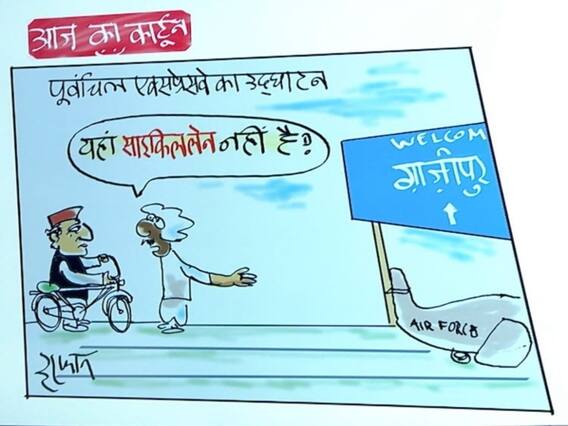 आज का कार्टून
पूर्वांचल एक्सप्रेसवे का उद्घाटन
यहां साइकिल लेन नहीं है?
WELCOM
ग़ाज़ीपुर
AIR FORCE
इरफ़ान